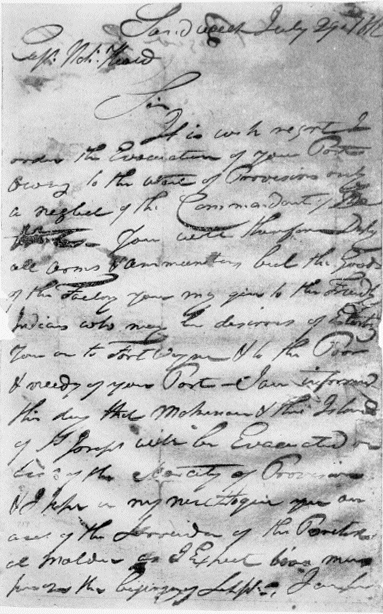 Sandwich July 29th 1812
Capt. Nat. Heald
Sir
It is with regret I
order the Evacuation of your Post
owing to the want of Provisions only
a neglect of the Commandant of
You will therefore Destroy
all arms & ammunition but the Goods
of the Factory you may give to the Friendly
Indians who may be desirous of Escorting
you on to Fort Wayne & to the Poor
& needy of your Post. I am informed
this day that Makinac & the Island
of St. Joseph will be Evacuated on
acc: of the Scarcity of Provisions
& I hope in my next to give you an
acct. of the Surrender of the British
at Malden as I Expect 600 men
here by the beginning of Sept.